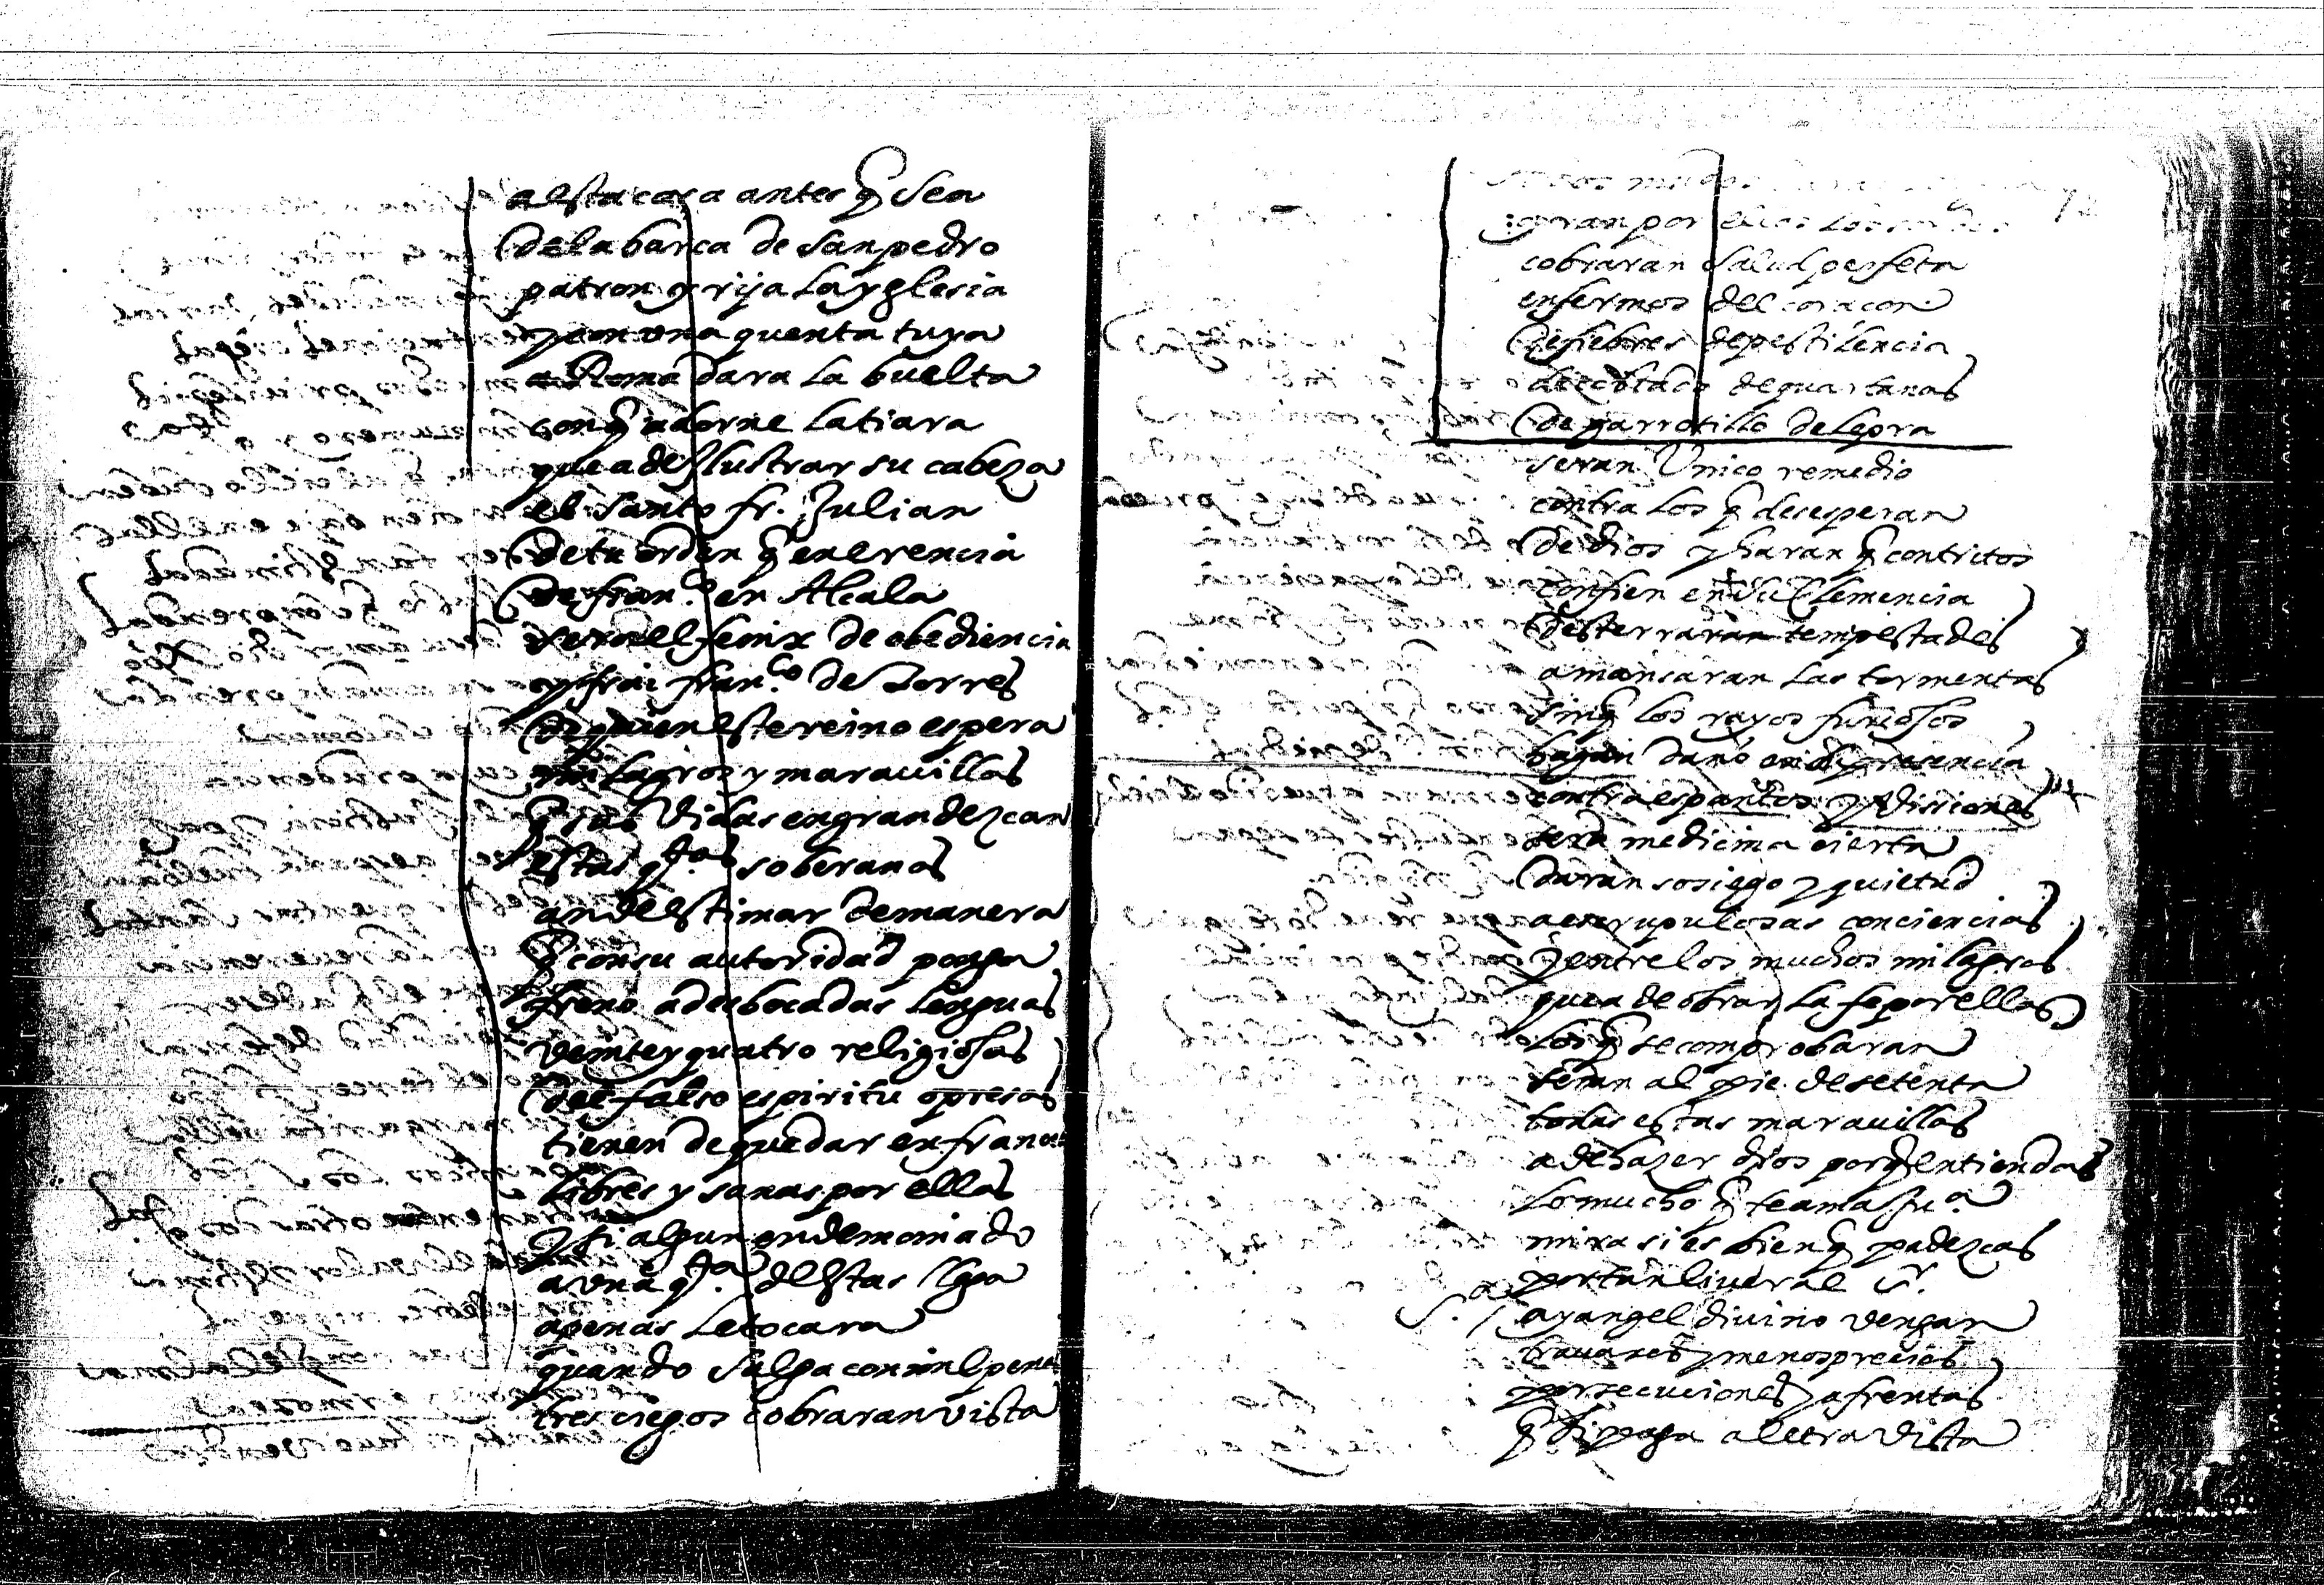 a esta casa antes q̃ sea
de la barca de San pedro
patron y rija la yglesia
y con una quenta tuya
a Roma dara la buelta
con q̃ adorne la tiara
que a de Ilustrar su cabeza
el santo fr. Julian
de tu orden q̃ en erencia
de fran.co en Alcala
sera el fenix de obediencia
y frai fran.co de Torres
de quien este reino espera
milagros y marauillas
q̃ sus vidas engrandezcan
estas q.tas soberanas
an de estimar de manera
q̃ con su autoridad ponga
freno a desbocadas lenguas
veinte y quatro religiosas
del falso espiritu opresas
tienen de quedar en
libres y sanas por ellas
y si algun endemoniado
a una q.ta destas llega
apenas le tocara
quando salga con mil penas
tres ciegos cobraran vista
mudos
oyran por ellas los sordos
cobraran salud perfeta
enfermos del coraçon
de fiebres de pestilencia
de costado de quartanas
de garrotillo de lepra
seran Unico remedio
contra los q̃ desesperan
de dios y haran q̃ contritos
confien en su Clemencia
desterraran tempestades
amansaran las tormentas
sin q̃ los rayos furiosos
hagan daño en su presencia
contra espantos y visiones
sera medicina cierta
daran sosiego y quietud
a escrupulosas conciencias
y entre los muchos milagros
que a de obrar la fe por ellas
los q̃ se comprobaran
seran al pie de setenta
todas estas marauillas
a de hazer dios porq̃ entiendas
lo mucho q̃ te ama Ju.a
mira si es bien q̃ padezcas
por tan liueral Sr.
S.a / ay angel diuino vengan
trauajos y menosprecios
persecuciones y afrentas
q̃ si paga a letra vista